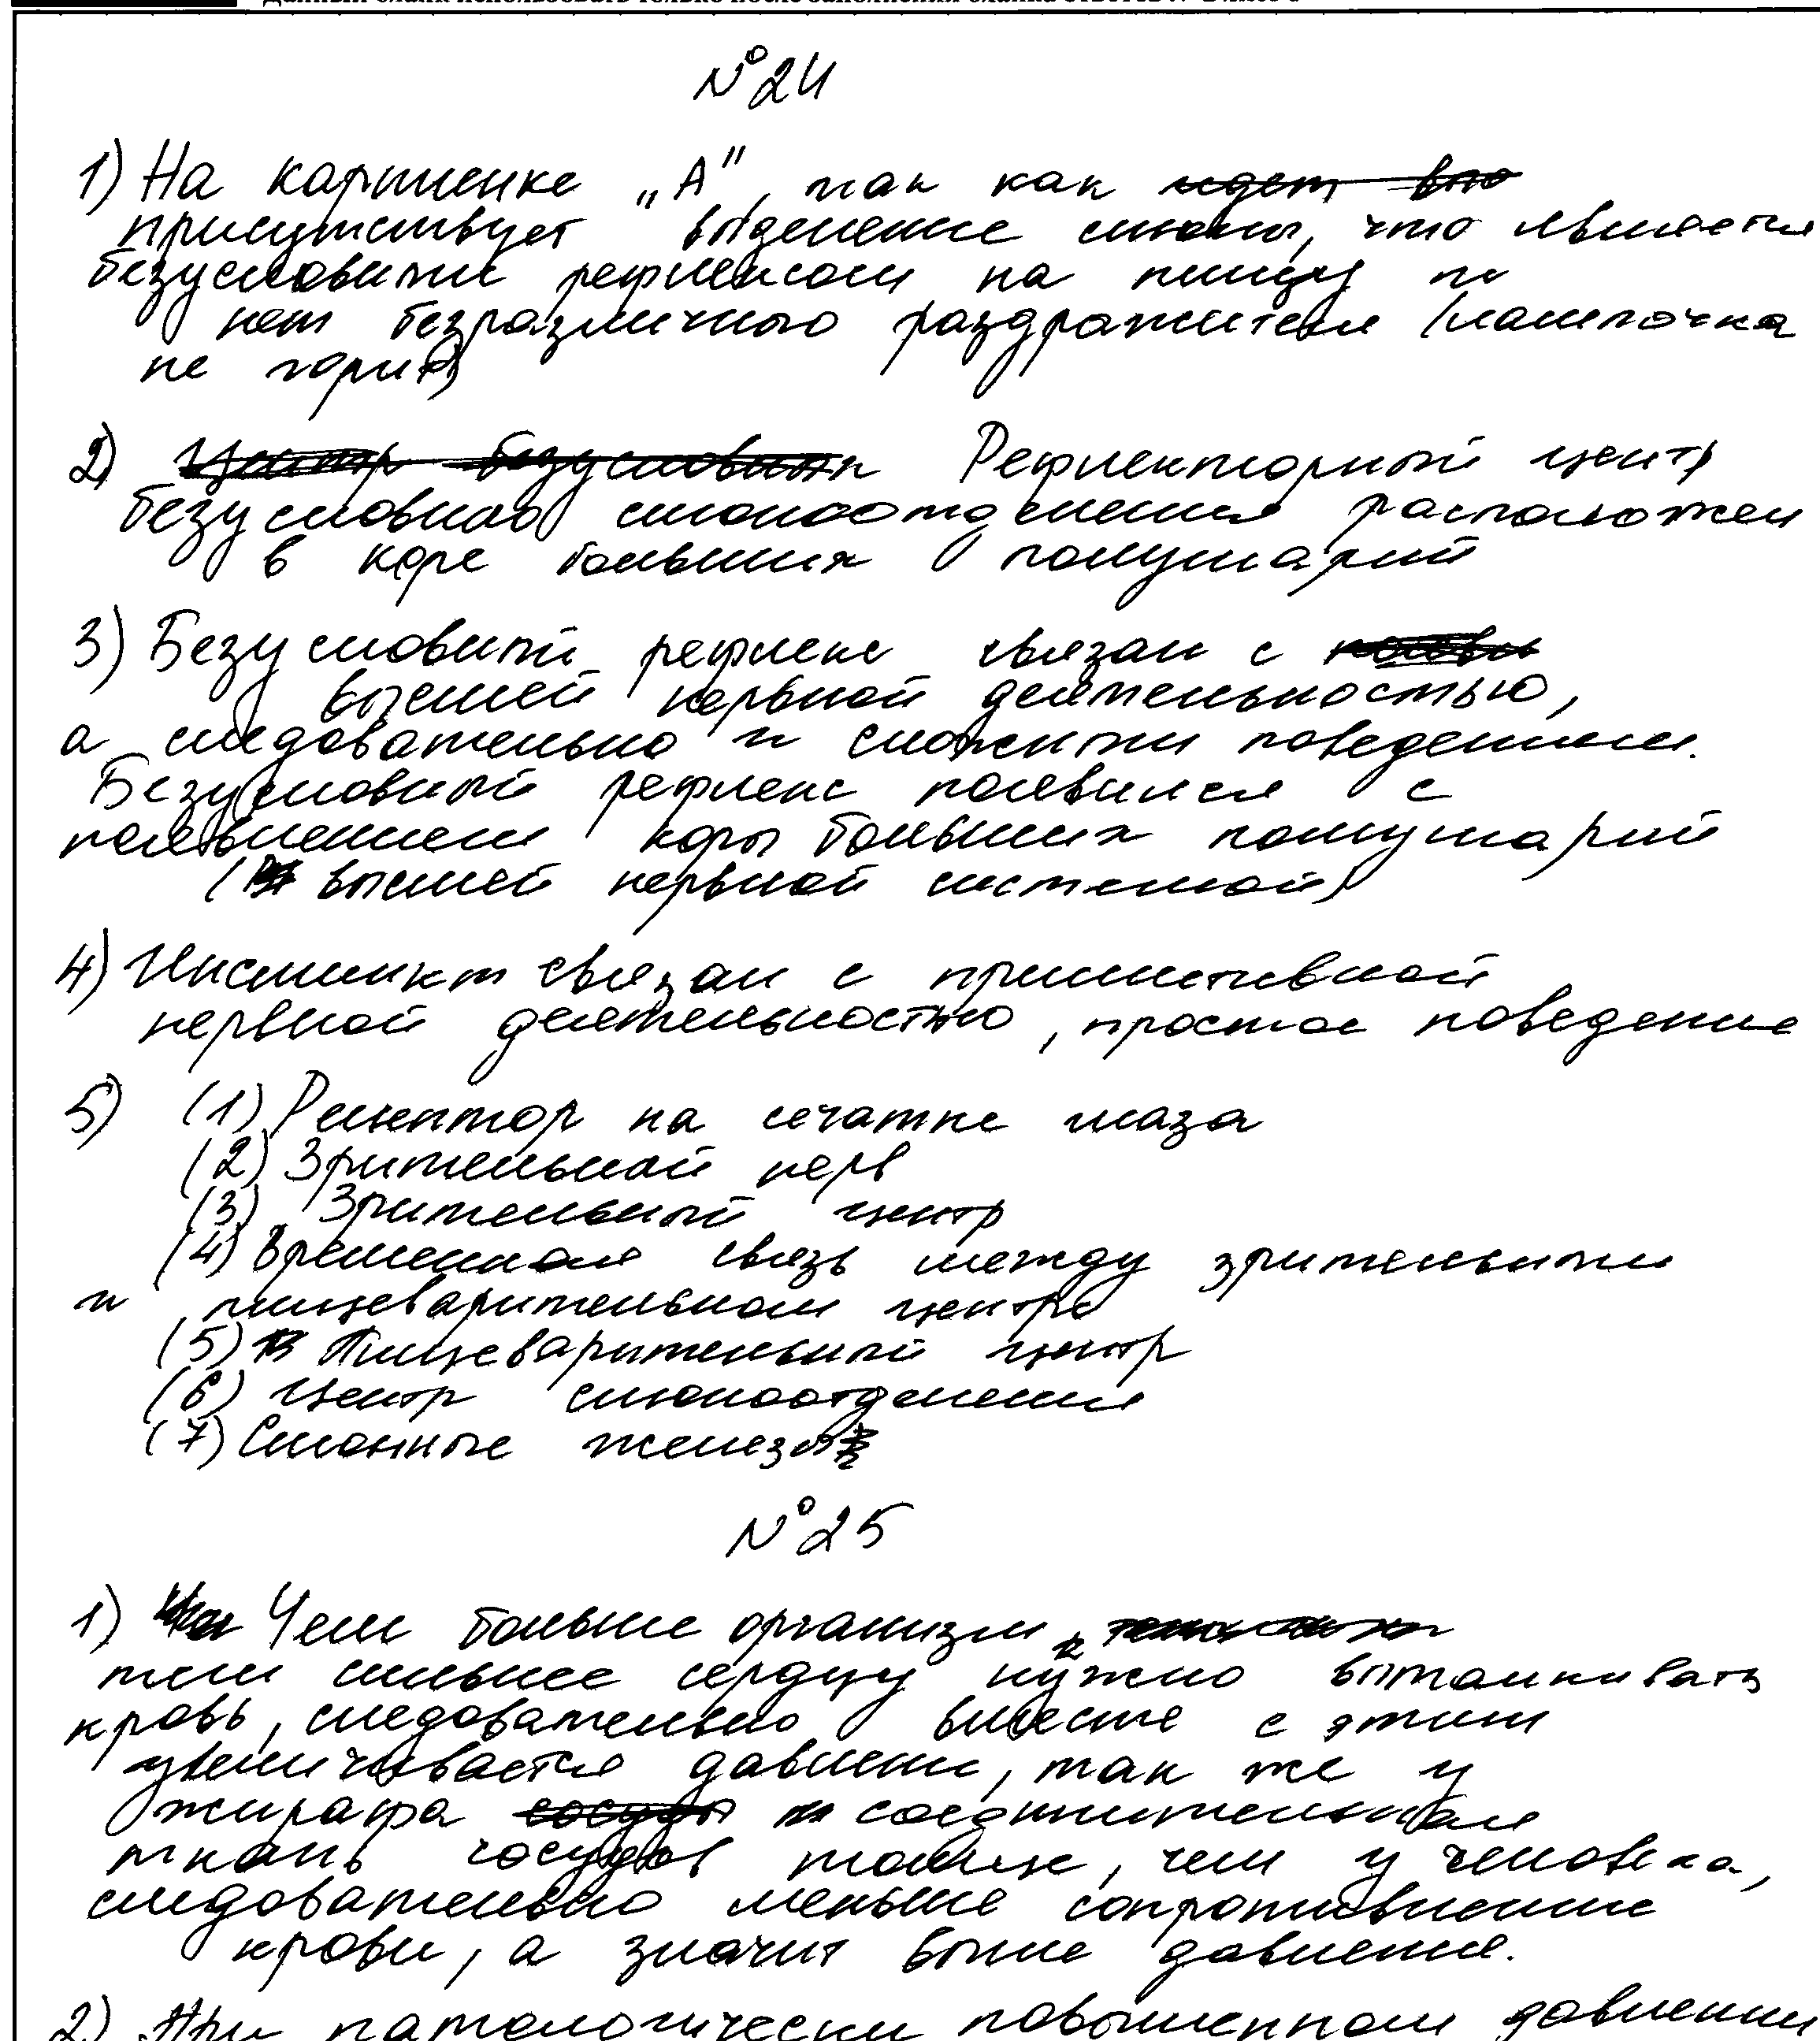 №24
1) На картинке „А", так как
присутствует выделение слюны, что является
безусловным рефлексом на пищу и
нет безразличного раздражителя (лампочка
не горит)
2) Рефлекторный центр
безусловного слюноотделения расположен
в коре больших полушарий
3) Безусловный рефлекс связан с
высшей нервной деятельностью,
а следовательно и сложным поведением.
Безусловный рефлекс появился с
появлением коры больших полушарий
( высшей нервной системой)
4) Инстинкт связан с примитивной
нервной деятельностью, простое поведение
5) (1) Рецептор на сетчатке глаза
(2) Зрительной нерв
(3) Зрительный центр
(4) Временная связь между зрительными
и пищеварительном центре
(5) Пищеварительный центр
(6) Центр слюноотделения
(7) Слюнные железы
№25
1) Чем больше организм,
тем сильнее сердцу нужно выталкивать
кровь, следовательно вместе с этим
увеличивается давлени, так же у
жирафа соединительная
ткань сосудов толще, чем у человека,
следовательно меньше сопротивление
крови, а значит выше давление.
2) При патологически повышенном давлении